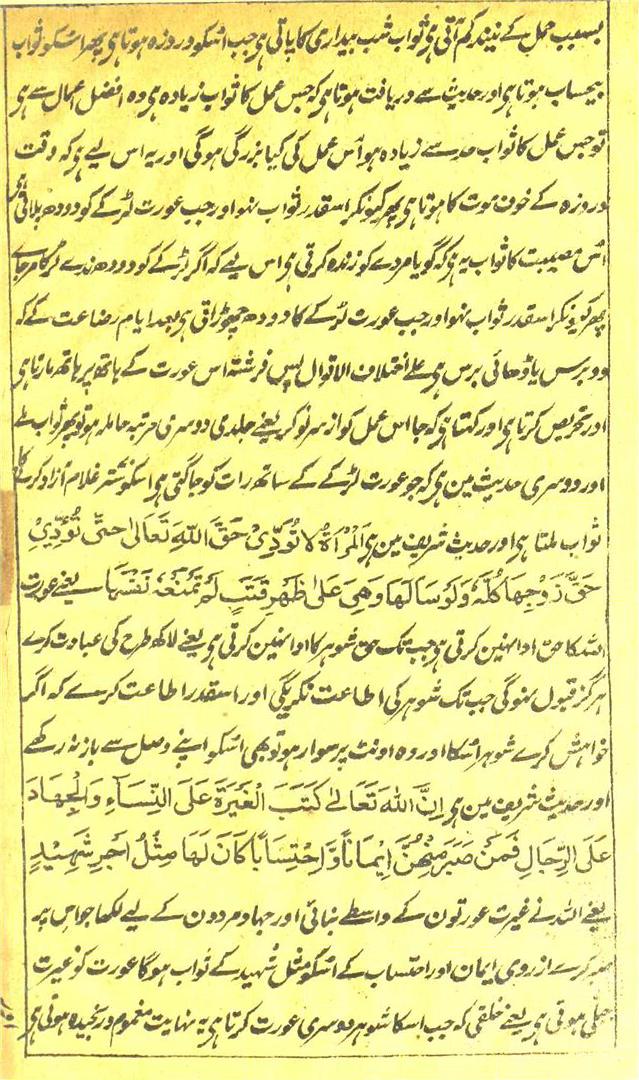 بسبب حمل کے نیند کم آتی ہی ثواب شب بیداری کا پاتی ہی جب اسکو درد زہ ہوتا ہی پھر اسکو ثواب
بیحساب ہوتا ہی اور حدیث سے دریافت ہوتا ہی کہ جس عمل کا ثواب زیادہ ہی وہ افضل اعمال سے ہی
تو جس عمل کا ثواب حد سے زیادہ ہو اس عمل کی کیا بزرگی ہوگی اور یہ اس لیے ہی کہ وقت
درد زہ کے خون موت کا ہوتا ہی پھر کیونکر اسقدر ثواب نہو اور جب عورت لڑکے کو دودھ پلاتی ہی
اس مصیبت کا ثواب یہ ہی کہ گویا مردے کو زندہ کرتی ہی اس لیے کہ اگر لڑکے کو دودھ ندے لڑکا مر جاے
پھر کیونکر اسقدر ثواب نہو اور جب عورت لڑکے کا دودھ چھوڑاتی ہی بعد ایام رضاعت کے کہ
دو برس یا ڈھائی برس ہی علے اختلاف الاقوال پس فرشتہ اس عورت کے ہاتھ پر ہاتھ مارتا ہی
اور تحریص کرتا ہی اور کہتا ہی کہ جا اس عمل کو از سر نو کر یعنے جلدی دوسری مرتبہ حاملہ ہو تو پھر ثواب ملے
اور دوسری حدیث مین ہی کہ جو عورت لڑکے کے ساتھ رات کو جاگتی ہی اسکو ستر غلام آزاد کرنے کا
ثواب ملتا ہی اور حدیث شریف مین ہی اَلْمَرْأَةُ لَا تُؤَدِّیْ حَقَّ اللّٰهِ تَعَالٰی حَتّٰی تُؤَدِّیْ
حَقَّ زَوْجِهَا كُلَّهٗ وَلَوْ سَالَهَا وَهِیَ عَلٰی ظَهْرِ قَتَبٍ لَمْ تَمْنَعْهُ نَفْسَهَا یعنے عورت
اللہ کا حق ادا نہین کرتی ہی جب تک حق شوہر کا ادا نہین کرتی ہی یعنے لاکھ طرح کی عبادت کرے
ہرگز قبول نہوگی جب تک شوہر کی اطاعت نکریگی اور اسقدر اطاعت کرے کہ اگر
خواہش کرے شوہر اسکا اور وہ اونٹ پر سوار ہو تو بھی اسکو اپنے وصل سے باز نہ رکھے
اور حدیث شریف مین ہی اِنَّ اللّٰهَ تَعَالٰے كَتَبَ الْغَیْرَةَ عَلَی النِّسَآءِ وَالْجِهَادَ
عَلَی الرِّجَالِ فَمَنْ صَبَرَ مِنْهُنَّ اِیْمَانًا وَّ احْتِسَابًا كَانَ لَهَا مِثْلُ اَجْرِ شَهِیْدٍ
یعنے اللہ نے غیرت عورتون کے واسطے بنائی اور جہاد مردون کے لیے لکھا جو اس پر
صبر کرے از روی ایمان اور احتساب کے اسکو مثل شہید کے ثواب ہوگا عورت کو غیرت
جبلی ہوتی ہی یعنے خلقی کہ جب اسکا شوہر دوسری عورت کرتا ہی یہ نہایت مغموم و رنجیدہ ہوتی ہی